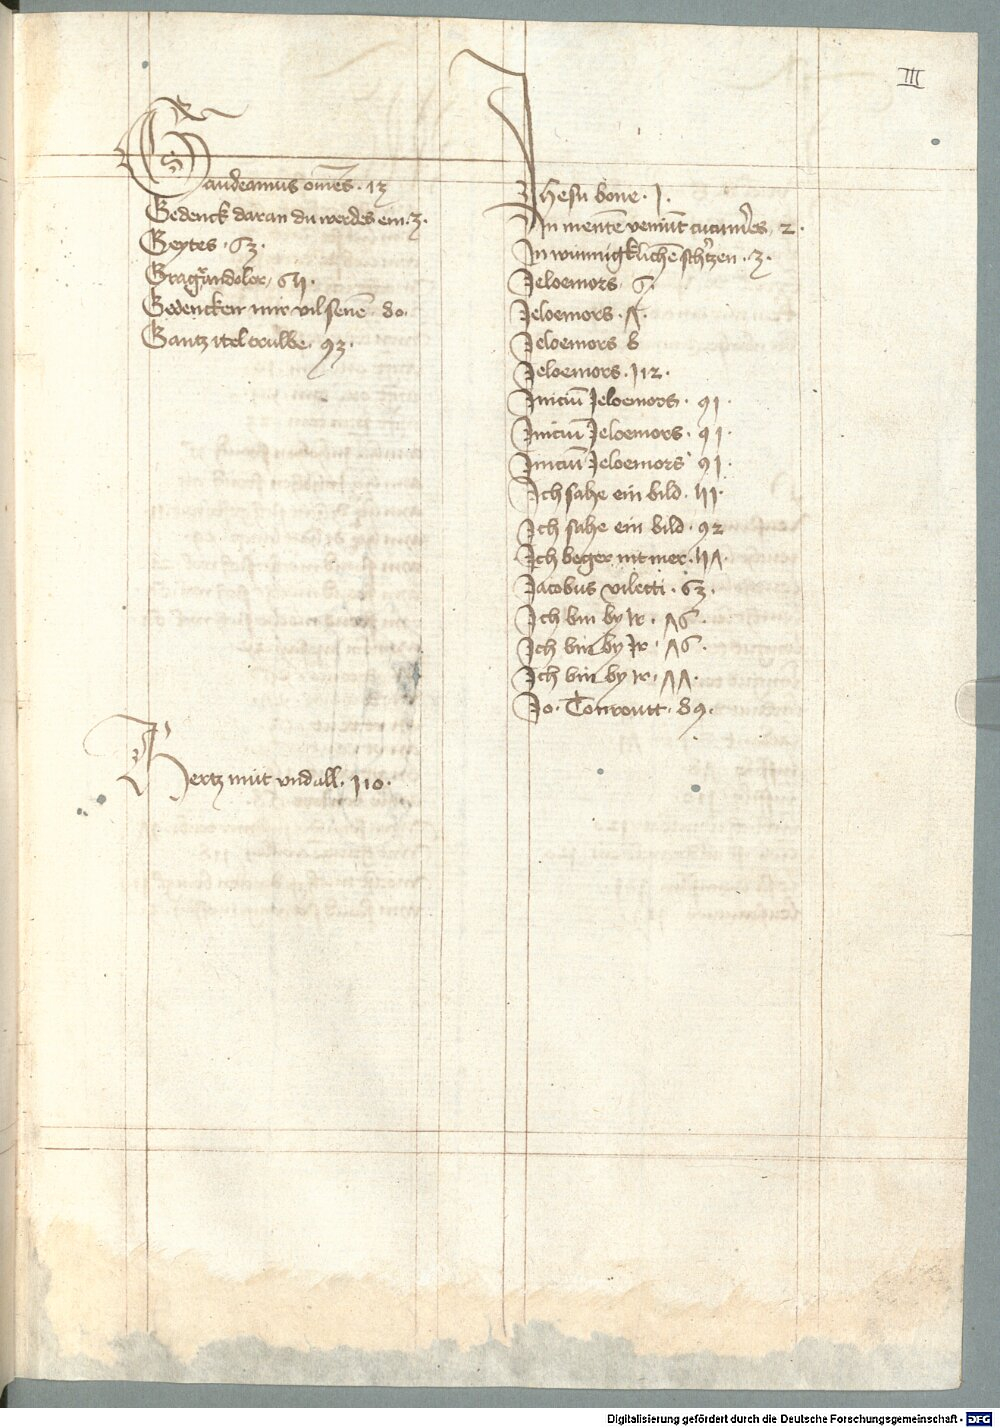 III
Gaudeamus om̄es · 13
Gedenck daran du werdes ein · 3 ·
Geytes · 63 ·
Gragrandoler · 64 ·
Gedencken mir vil senē · 80 ·
Gantz itel trulbe · 93 ·
Hertz mut vnd all · 110 ·
Jhesu bone · 1 ·
In mentē veniūt cucum̄es · 2 ·
In wunnigklichē schtzen · 3 ·
Jeloemors · 6 ·
Jeloemors · 7 ·
Jeloemors 8
Jeloemors · 112 ·
Iniciū Jeloemors · 91 ·
Iniciū Jeloemors · 91 ·
Iniciū Jeloemors 91 ·
Ich sahe ein bild · 41 ·
Ich sahe ein bild · 92
Ich beger nit mer · 47 ·
Jacobus viletti · 63 ·
Ich bin by Ir · 76 ·
Ich bin by Ir · 76 ·
Ich bin by Ir · 77 ·
Jo · Tonroutt · 89 ·
Digitalisierung gefördert durch die Deutsche Forschungsgemeinschaft - DFG